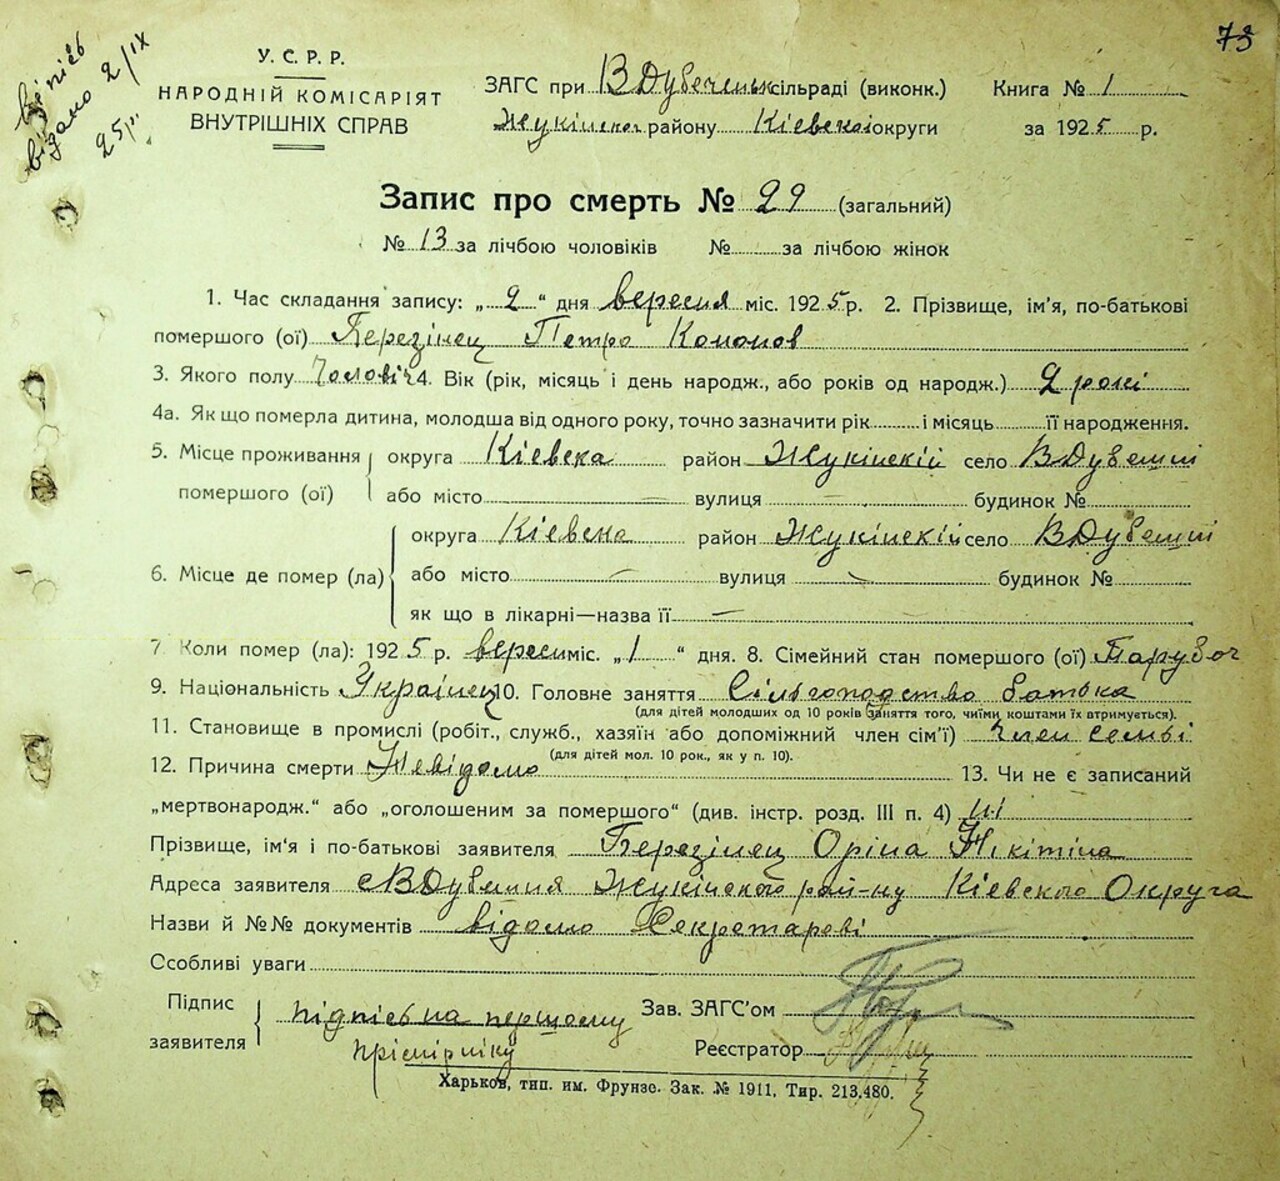 73
випісь
відано 2/ІХ
25 г.
У. С. Р. Р.
НАРОДНІЙ КОМІСАРІЯТ
ВНУТРІШНІХ СПРАВ
ЗАГС при ВДубеченськ сільраді (виконк.)
Жукінском району Кіевскоі округи
Книга № 1
за 1925 р.
Запис про смерть № 29 (загальний)
№ 13 за лічбою чоловіків № за лічбою жінок
1. Час складання запису: „2“ дня вересня міс. 1925 р. 2. Прізвище, ім'я, по-батькові
помершого (ої) Перезінец Петро Кононов
3. Якого полу Чоловіч 4. Вік (рік, місяць і день народж., або років од народж.) 2 рокі
4а. Як що померла дитина, молодша від одного року, точно зазначити рік і місяць її народження.
5. Місце проживання округа Кіевска район Жукінскій село ВДубешні
помершого (ої) або місто — вулиця — будинок №
округа Кіевска район Жукінскій село ВДубешні
6. Місце де помер (ла) або місто — вулиця — будинок №
як що в лікарні—назва її —
7 Коли помер (ла): 1925 р. вересн міс. „1“ дня. 8. Сімейний стан помершого (ої) Парубоч
9. Національність Українец 10. Головне заняття Сільгоподство батька
(для дітей молодших од 10 років заняття того, чиїми коштами їх втримується).
11. Становище в промислі (робіт., служб., хазяїн або допоміжний член сім'ї) Член семьі
(для дітей мол. 10 рок., як у п. 10).
12. Причина смерти Невідомо 13. Чи не є записаний
„мертвонародж.“ або „оголошеним за помершого“ (див. інстр. розд. III п. 4) ні
Прізвище, ім'я і по-батькові заявителя Перезінец Оріна Нікітіна
Адреса заявителя сВДубешня Жукінского рай-ну Кіевского Округа
Назви й №№ документів відомо Секретареві
Особливі уваги
Підпис
заявителя
підпісь на першому
прімірніку
Зав. ЗАГС'ом
Реєстратор
Харьков, тип. им. Фрунзе. Зак. № 1911, Тир. 213.480.